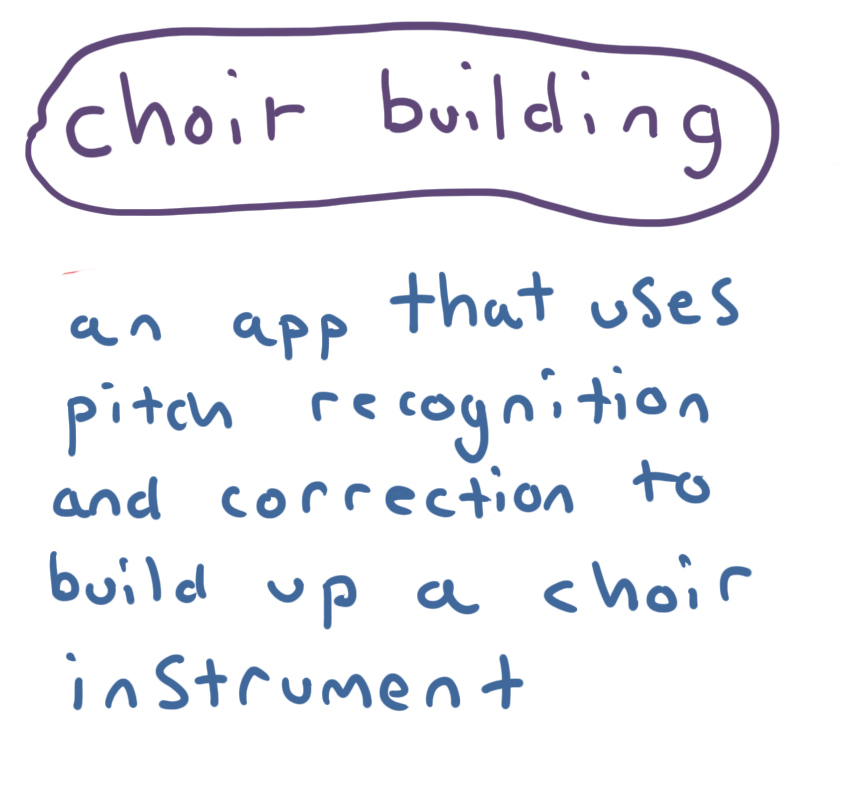 choir building
an app that uses
pitch recognition
and correction to
build up a choir
instrument